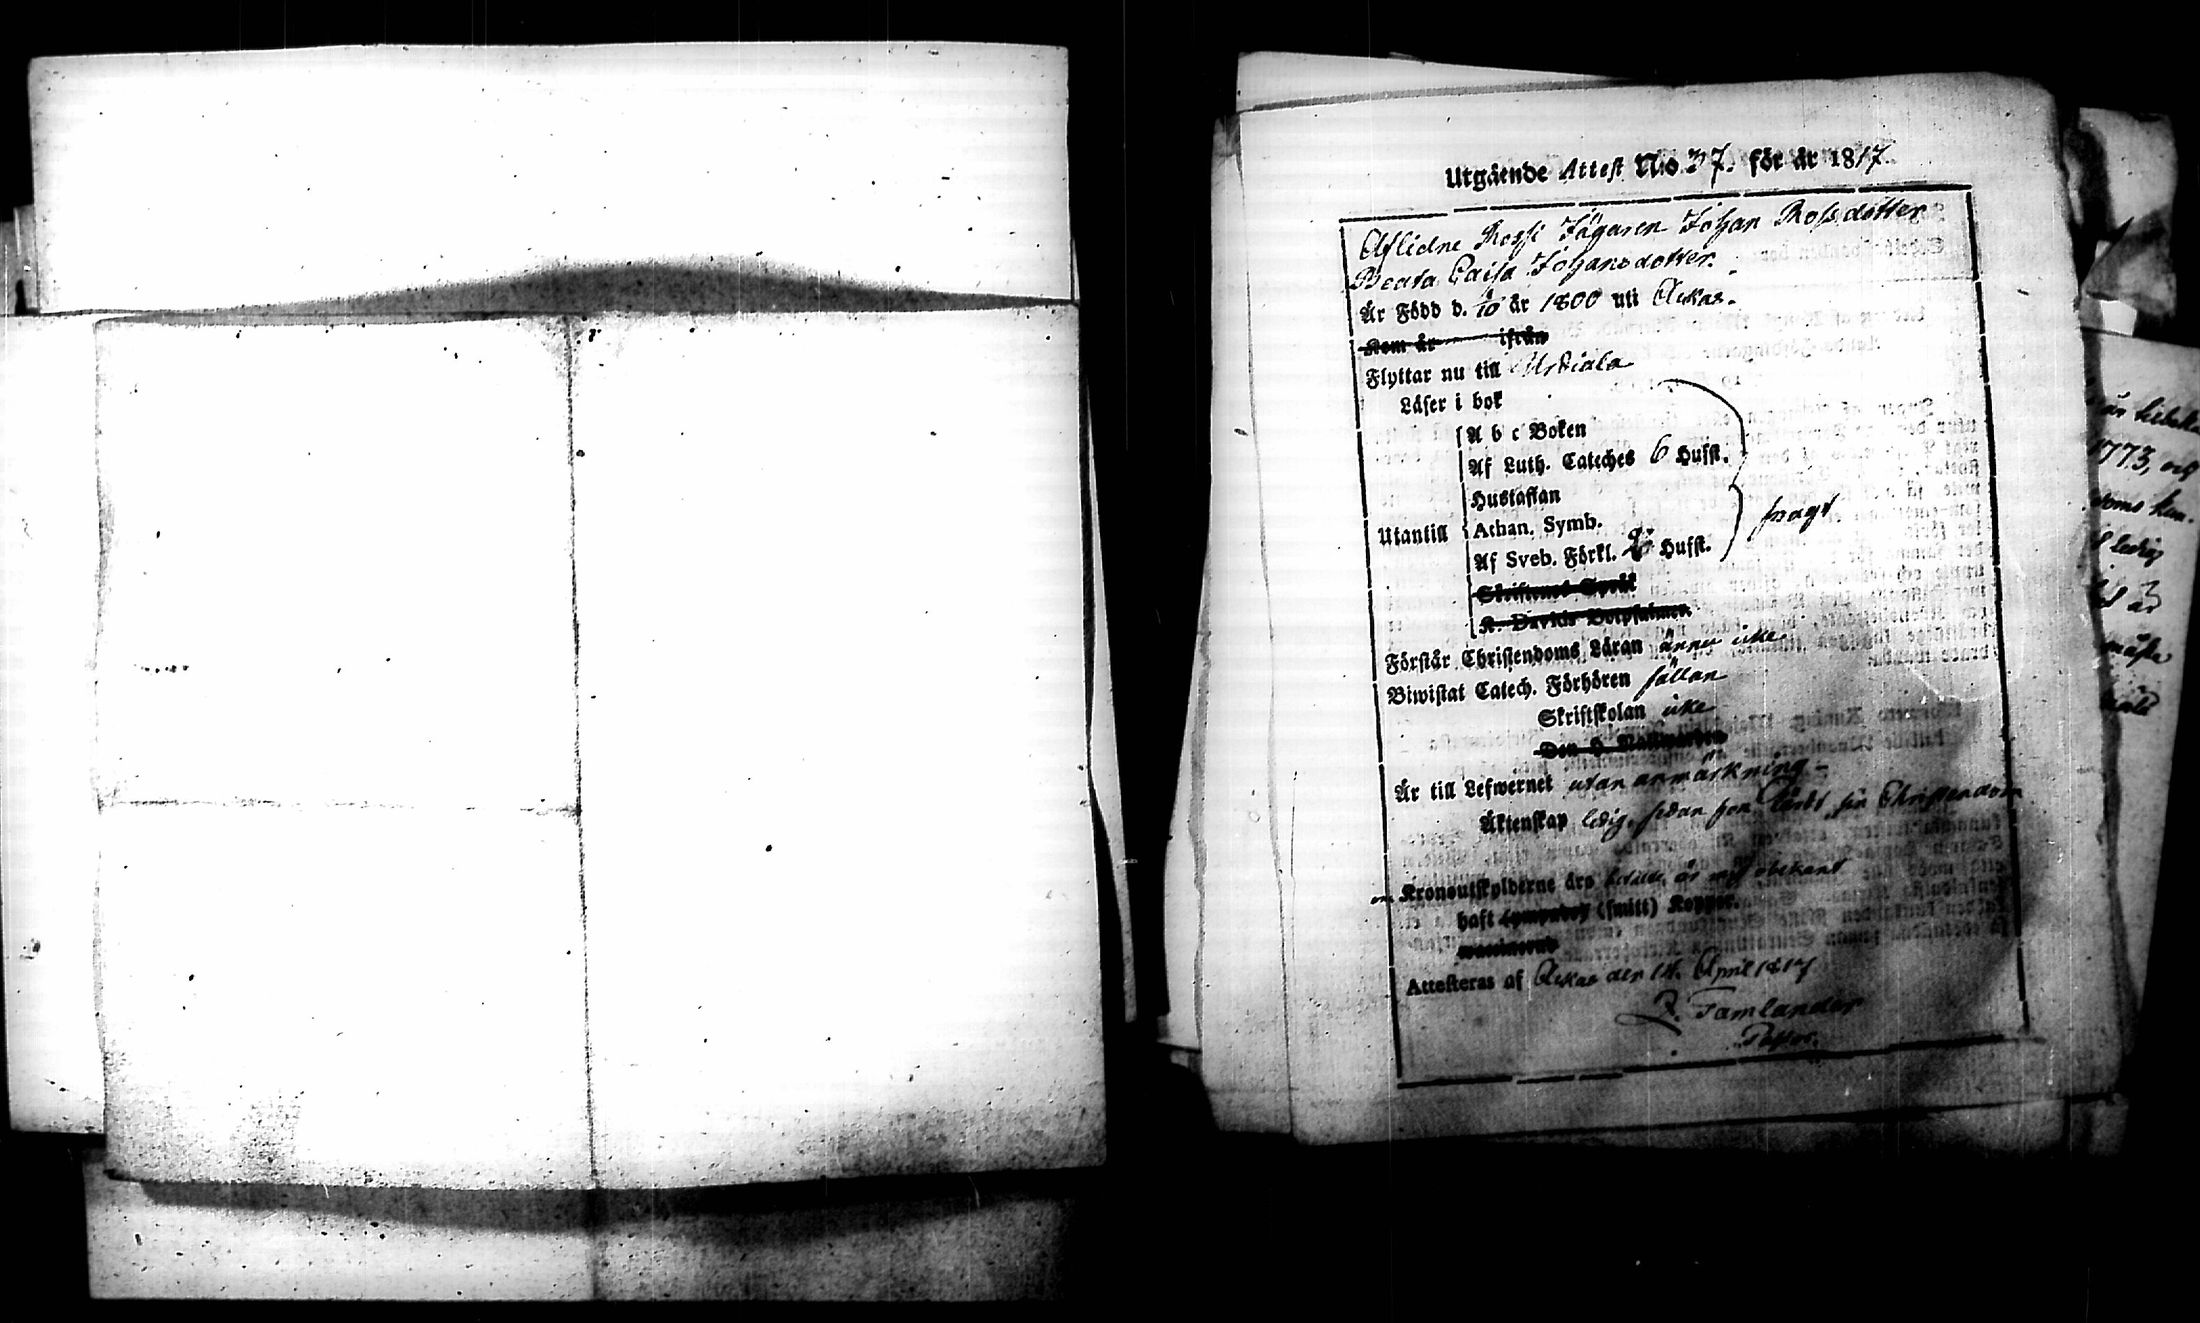 Utgående Attest N:o 37. för år 1817.
Aflidne Rossi Jägaren Johan Rossdotter
Beata Caisa Johansdotter.
Är Född d. år 1800 uti Ackas.
Kom år ifrån
Flyttar nu till Urdiala
Läser i bok
A b c Boken
Af Luth. Cateches 6 Hufst.
Hustaflan
Utantill Athan. Symb.
svagt
Af Sveb. Förkl. Hufst.
Skriftenes Språk
K. Davids Botpsalmer.
Förstår Christendoms Läran ännu icke
Biwistat Catech. Förhören sällan
Skriftskolan icke
Den H. Nattwarden
Är till Lefwernet utan anmärkning –
Äktenskap ledig, sedan hon lärdt sin Christendom
om Kronoutskylderne äro betalde är mig obekant
haft (smitt) Koppor.
vaccinerad
Attesteras af Ackas den 14. April 1817
Tamlander
Pastor.
är
1773, och
doms kun-
ledig
år
måste